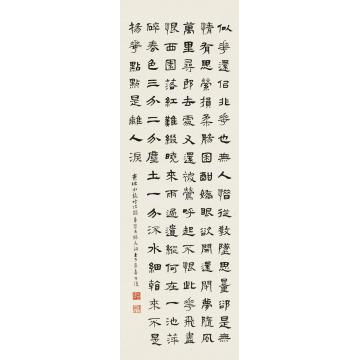 似華還佀非華也無人惜從教墜思量卻是無
情有思縈損柔腸困酣嬌眼欲開還閉夢隨風
萬里尋郎去處又還被鶯呼起不恨此華飛盡
恨西園落紅難綴曉來雨過遺縱何在一池萍
碎春色三分二分塵土一分流水細看來不是
楊華點點是離人淚
東坡水龍吟次韻章質夫楊花詞